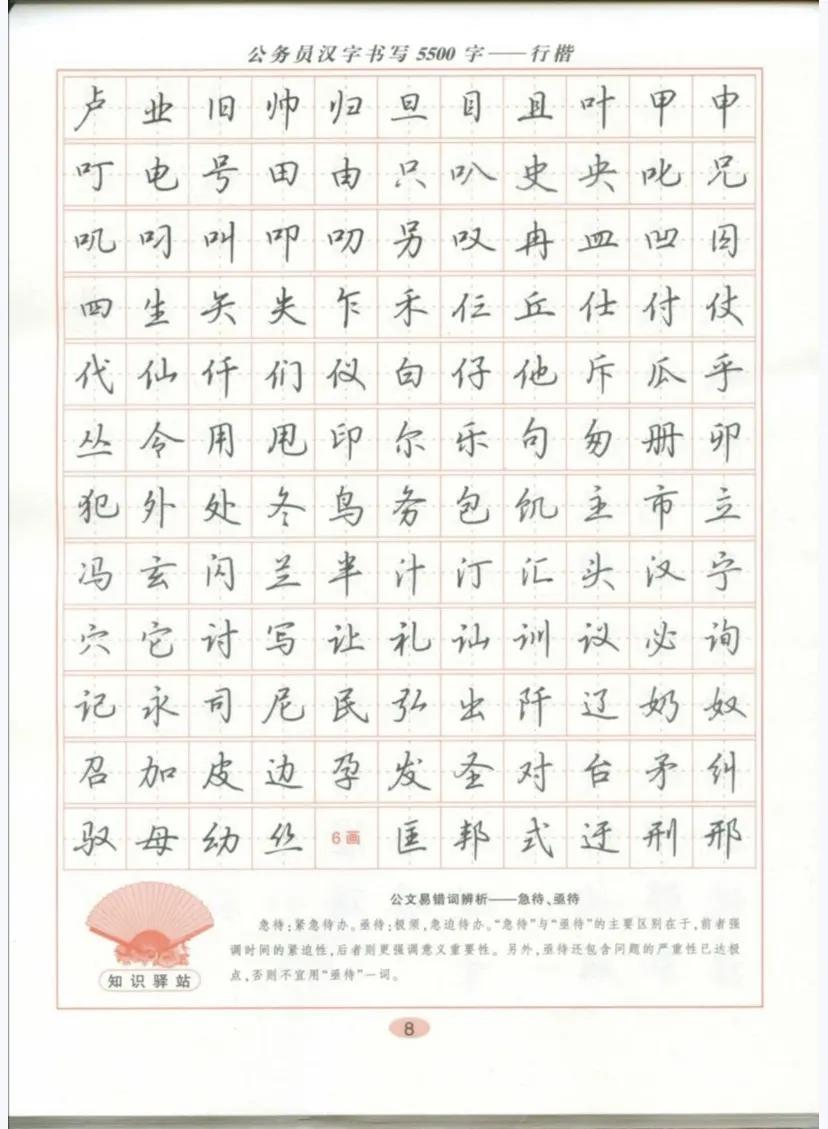 公务员汉字书写5500字——行楷
卢业旧帅归旦目且叶甲申
叮电号田由只叭史央叱兄
叽叼叫叩叨另叹冉皿凹囚
四生矢失乍禾仨丘仕付仗
代仙仟们仪白仔他斥瓜乎
丛令用甩印尔乐句匆册卯
犯外处冬鸟务包饥主市立
冯玄闪兰半汁汀汇头汉宁
穴它讨写让礼讪训议必询
记永司尼民弘出阡辽奶奴
召加皮边孕发圣对台矛纠
驭母幼丝6画匡邦式迂刑邢
公文易错词辨析——急待、亟待
急待：紧急待办。亟待：极须，急迫待办。“急待”与“亟待”的主要区别在于，前者强
调时间的紧迫性，后者则更强调意义重要性。另外，亟待还包含问题的严重性已达极
点，否则不宜用“亟待”一词。
知识驿站
8